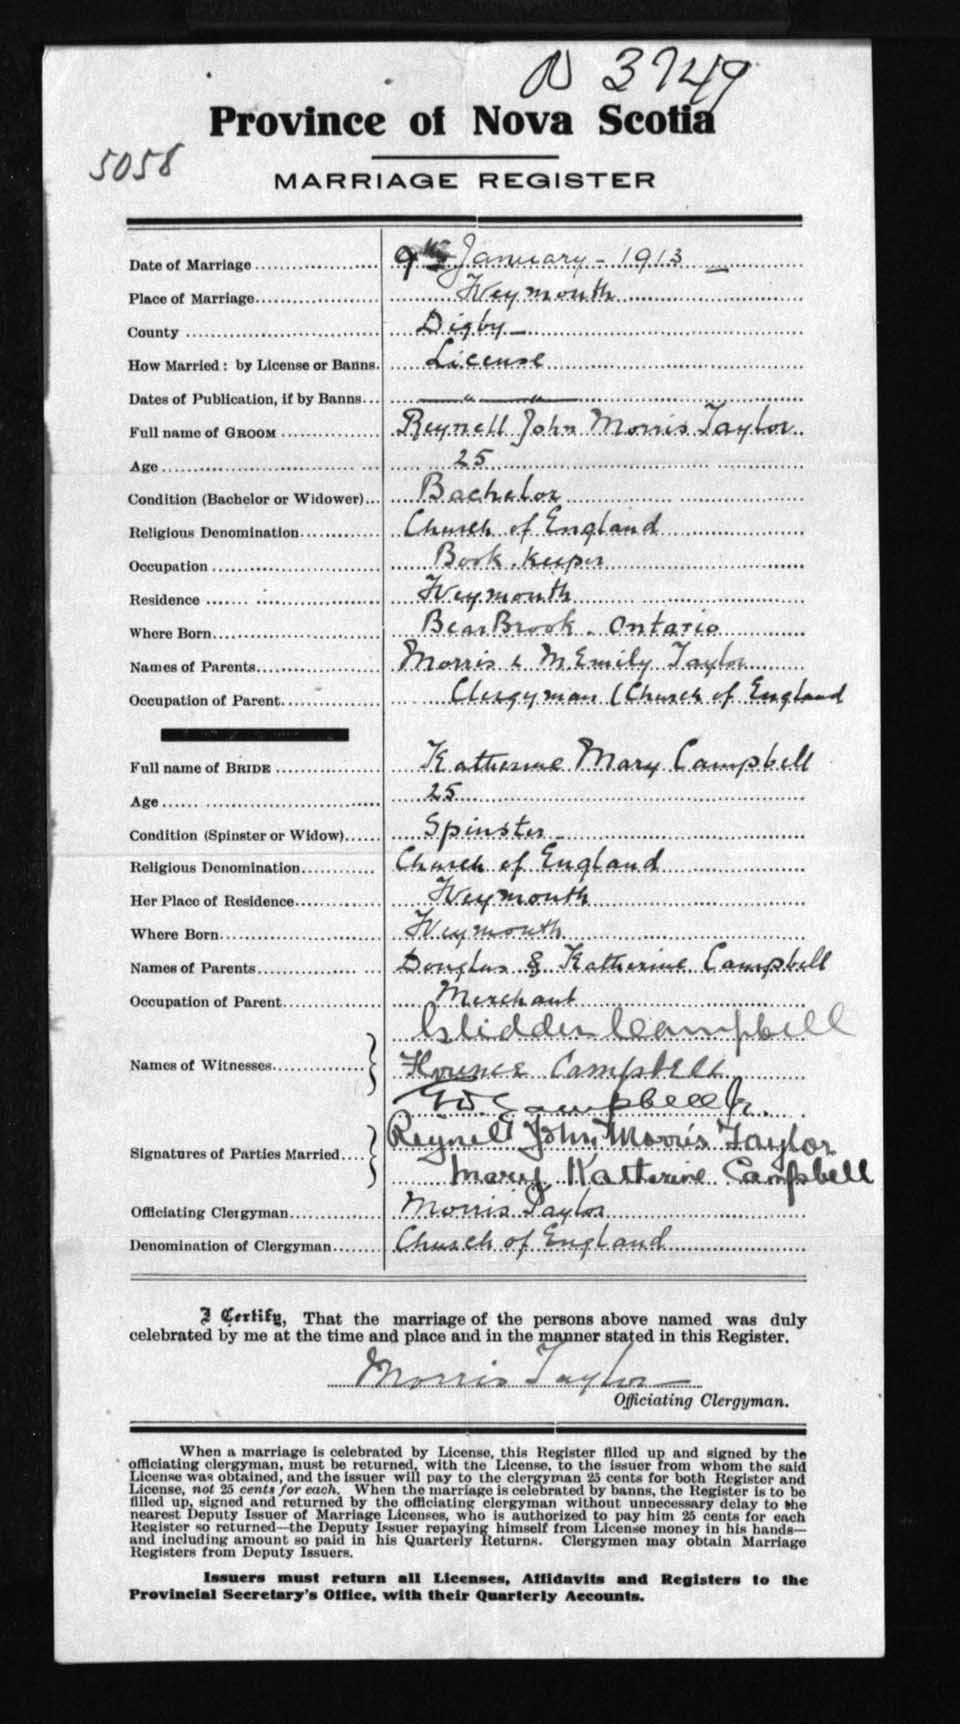 N 3749
Province of Nova Scotia
5058
MARRIAGE REGISTER
Date of Marriage 9th January - 1913
Place of Marriage Weymouth
County Digby
How Married: by License or Banns. License
Dates of Publication, if by Banns — " — " —
Full name of GROOM Reynell John Morris Taylor
Age 25
Condition (Bachelor or Widower) Bachelor
Religious Denomination Church of England
Occupation Book-keeper
Residence Weymouth
Where Born Bear Brook. Ontario
Names of Parents Morris & M Emily Taylor
Occupation of Parent Clergyman (Church of England
Full name of BRIDE Katherine Mary Campbell
Age 25
Condition (Spinster or Widow) Spinster
Religious Denomination Church of England
Her Place of Residence Weymouth
Where Born Weymouth
Names of Parents Douglas & Katherine Campbell
Occupation of Parent Merchant
Glidden Campbell
Names of Witnesses Florence Campbell
G D Campbell Jr.
Signatures of Parties Married Reynell John Morris Taylor
Mary Katherine Campbell
Officiating Clergyman Morris Taylor
Denomination of Clergyman Church of England
I Certify, That the marriage of the persons above named was duly
celebrated by me at the time and place and in the manner stated in this Register.
Morris Taylor
Officiating Clergyman.
When a marriage is celebrated by License, this Register filled up and signed by the
officiating clergyman, must be returned, with the License, to the issuer from whom the said
License was obtained, and the issuer will pay to the clergyman 25 cents for both Register and
License, not 25 cents for each. When the marriage is celebrated by banns, the Register is to be
filled up, signed and returned by the officiating clergyman without unnecessary delay to the
nearest Deputy Issuer of Marriage Licenses, who is authorized to pay him 25 cents for each
Register so returned—the Deputy Issuer repaying himself from License money in his hands—
and including amount so paid in his Quarterly Returns. Clergymen may obtain Marriage
Registers from Deputy Issuers.
Issuers must return all Licenses, Affidavits and Registers to the
Provincial Secretary's Office, with their Quarterly Accounts.